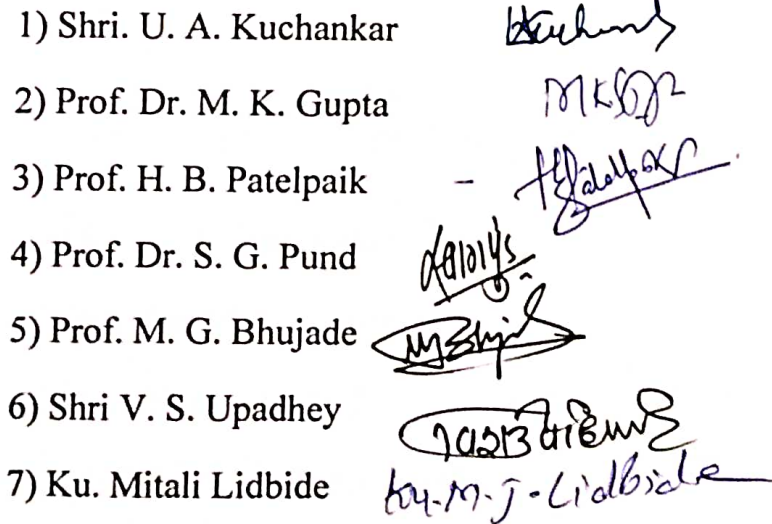 1) Shri. U. A. Kuchankar
2) Prof. Dr. M. K. Gupta
3) Prof. H. B. Patelpaik -
4) Prof. Dr. S. G. Pund
5) Prof. M. G. Bhujade
6) Shri V. S. Upadhey
7) Ku. Mitali Lidbide Ku. M. J. Lidbide